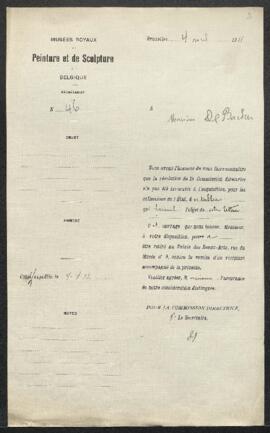 MUSÉES ROYAUX
DE
Peinture et de Sculpture
DE
BELGIQUE
SECRÉTARIAT
N° 46
OBJET
ANNEXE
NOTES
Bruxelles, 4 avril
À
Monsieur De
Nous avons l'honneur de vous faire connaître
que la résolution de la Commission directrice
n'a pas été favorable à l'acquisition, pour les
collections de l'État, du tableau
qui faisait l'objet de votre lettre
Cet ouvrage que nous tenons, Monsieur,
à votre disposition, pourra
être retiré au Palais des Beaux-Arts, rue du
Musée n° 9, contre la remise d'un récépissé
accompagné de la présente.
Veuillez agréer, Monsieur, l'assurance
de notre considération distinguée.
POUR LA COMMISSION DIRECTRICE,
Le Secrétaire,